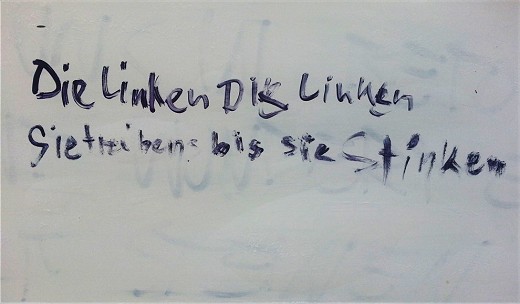 Die Linken Die Linken
Sie treibens bis sie stinken